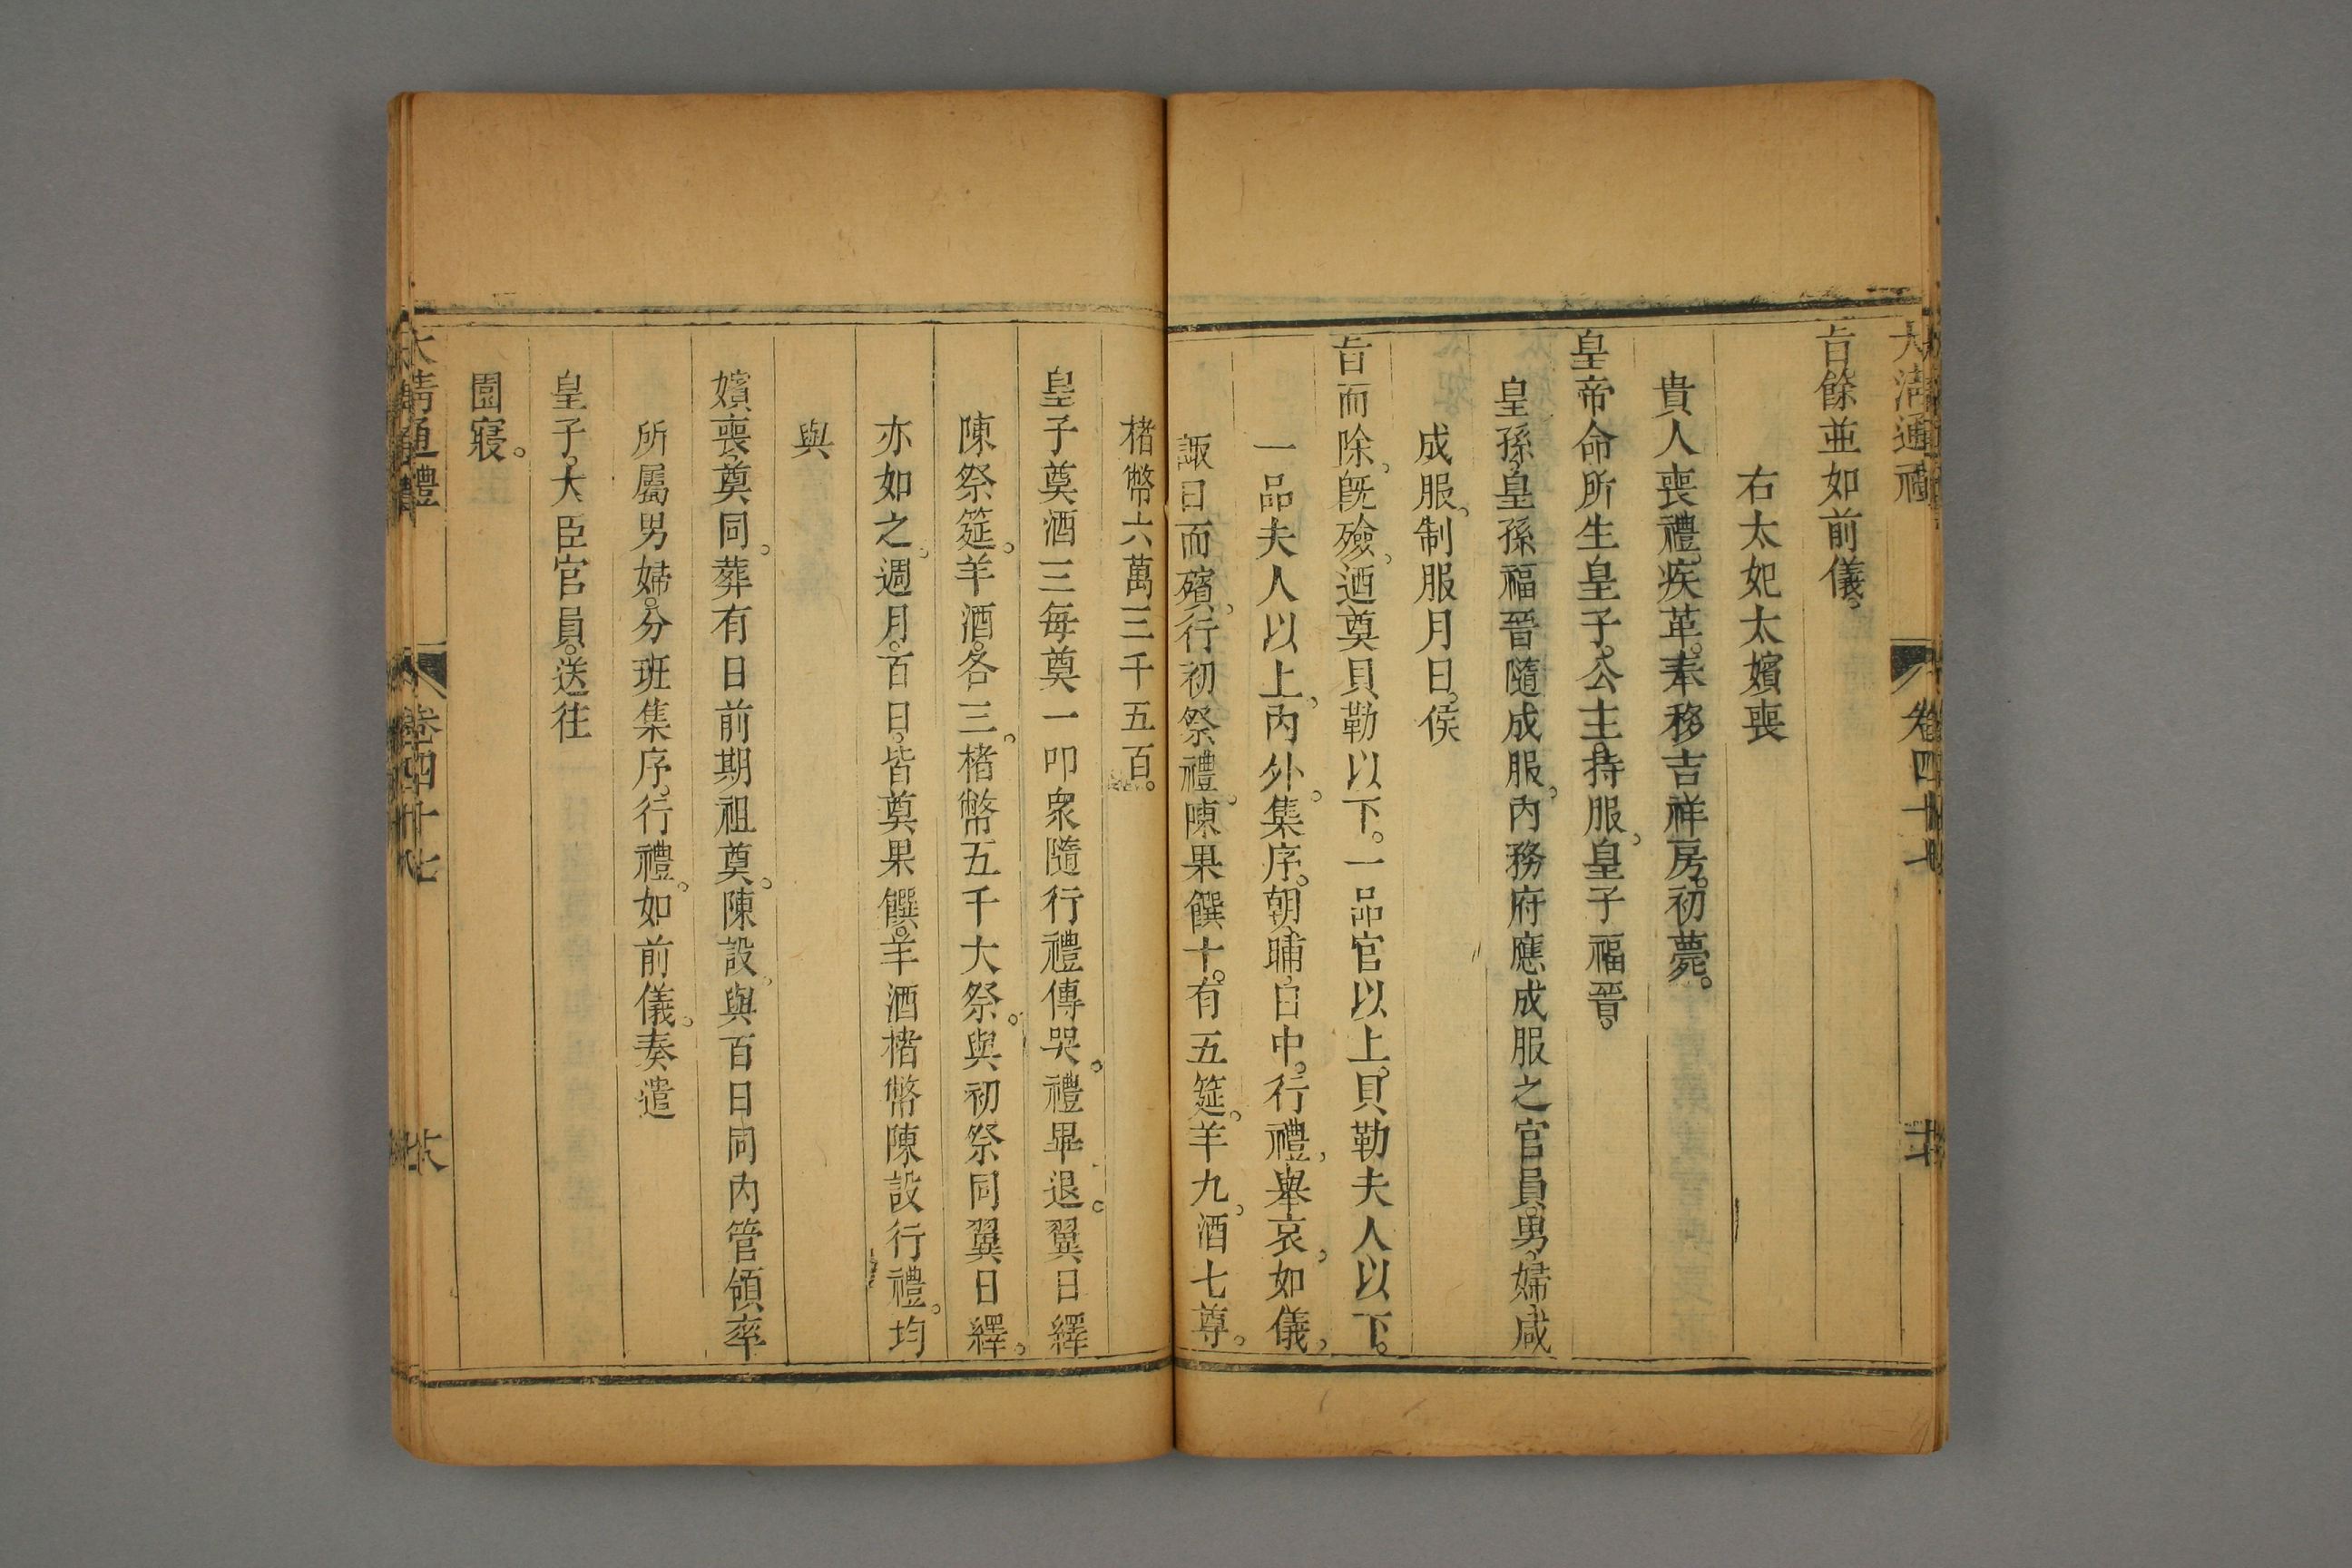 大淸通禮 卷四十七
旨餘並如前儀。
右太妃太嬪喪
貴人喪禮。疾革。奉移吉祥房。初薨。
皇帝命所生皇子。公主。持服。皇子福晉。
皇孫。皇孫福晉隨成服。內務府應成服之官員。男婦咸
成服。制服月日。俟
旨而除。旣殮。迺奠貝勒以下。一品官以上。貝勒夫人以下。
一品夫人以上。內外。集序。朝晡。日中。行禮。舉哀。如儀。
諏日而殯。行初祭禮。陳果饌十。有五筵。羊九。酒七尊。
楮幣六萬三千五百。
皇子奠酒三每奠一叩衆隨行禮傳哭。禮畢退。翼日繹
陳祭筵。羊酒。各三。楮幣五千大祭。與初祭同翼日繹。
亦如之。週月。百日。皆奠果饌。羊酒楮幣陳設行禮。均
與
嬪喪。奠同。葬有日前期祖奠。陳設。與百日同內管領率
所屬男婦。分班集序。行禮。如前儀。奏遣
皇子。大臣官員。送往
園寢。
大淸通禮 卷四十七